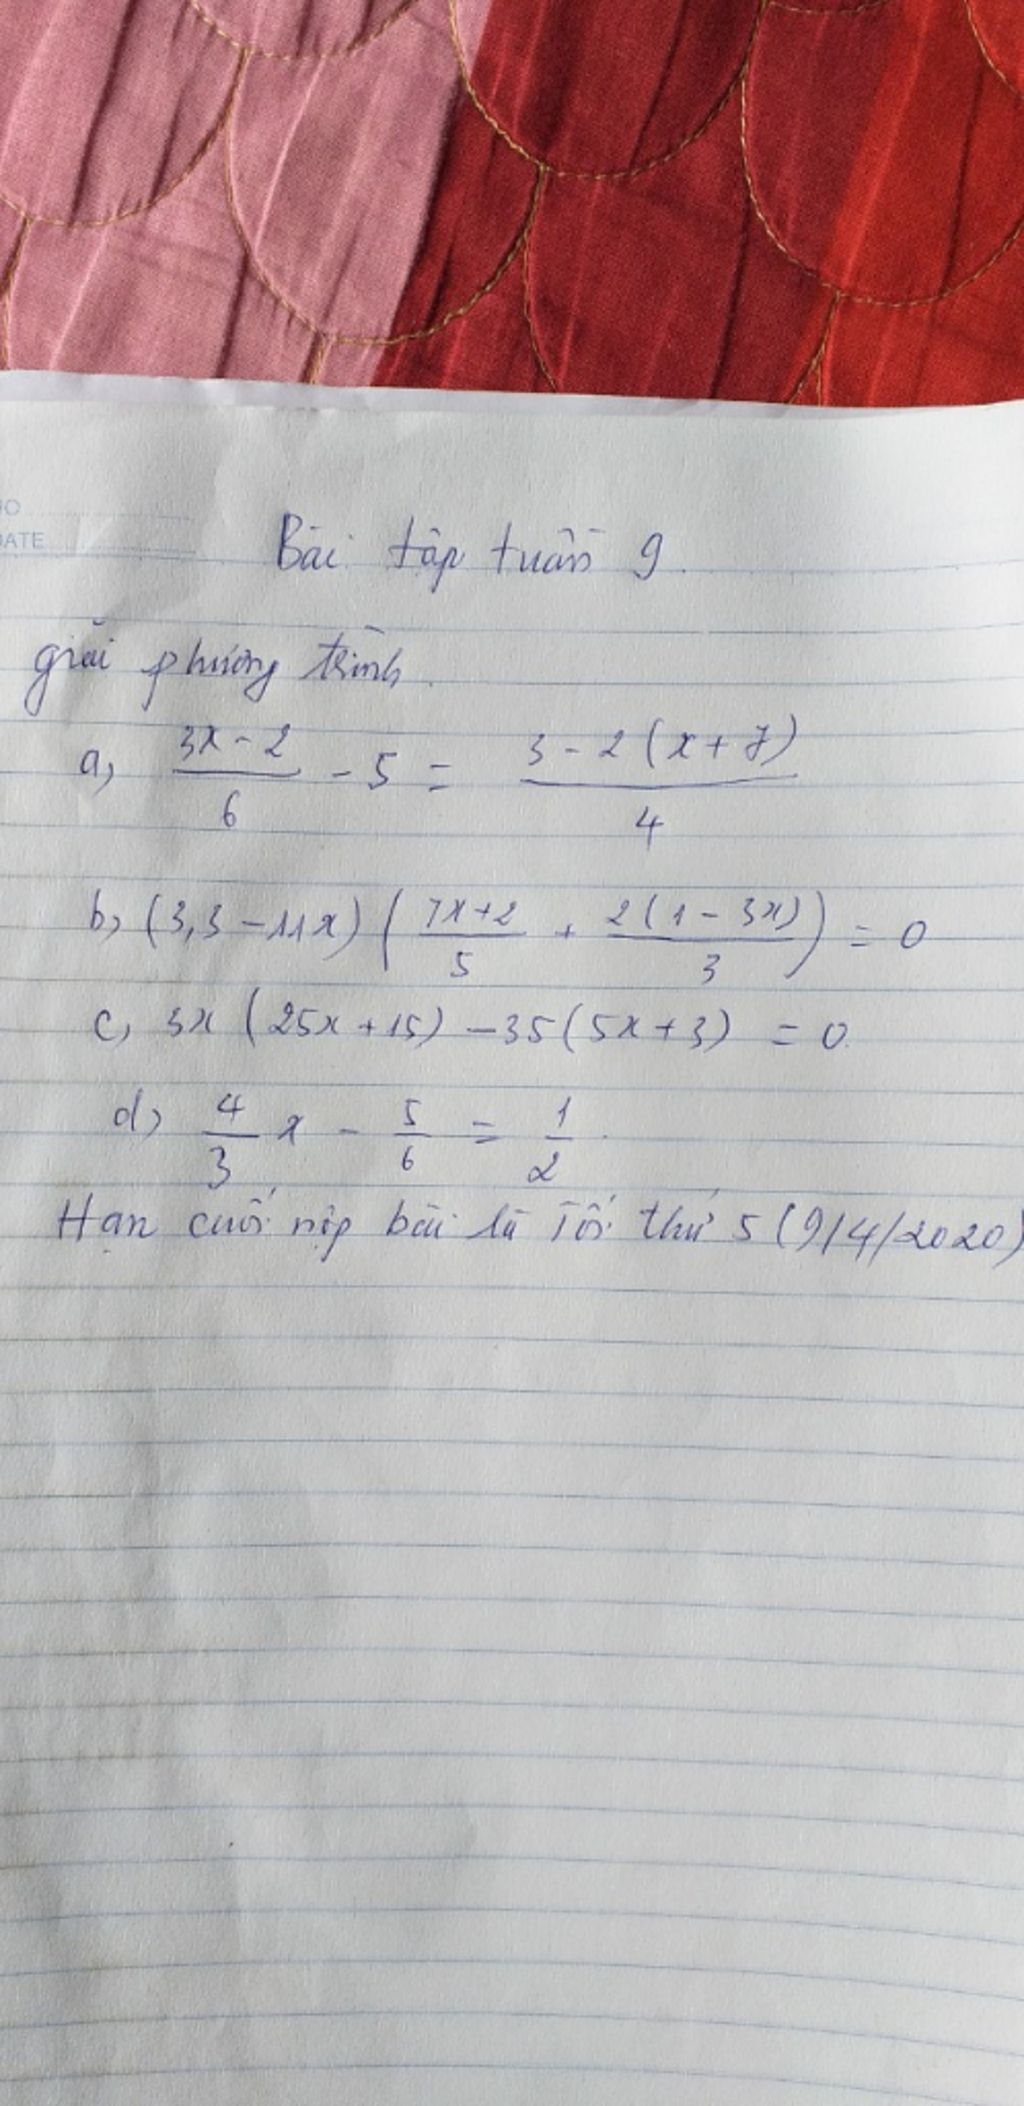 NO
DATE
Bài tập tuần 9.
giải phương trình.
a, \frac{3x-2}{6} - 5 = \frac{3-2(x+7)}{4}
b, (3,3 - 11x) ( \frac{7x+2}{5} + \frac{2(1-3x)}{3} ) = 0
c, 3x (25x+15) - 35(5x+3) = 0.
d, \frac{4}{3} x - \frac{5}{6} = \frac{1}{2}.
Hạn cuối nộp bài là Tối thứ 5 (9/4/2020)